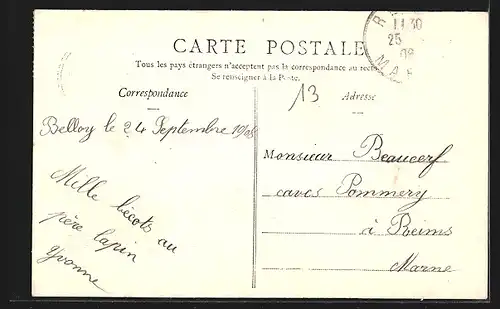 CARTE POSTALE
Tous les pays étrangers n'acceptent pas la correspondance au recto
Se renseigner à la Poste.
Correspondance
Adresse
13
11 30
25
08
Belloy le 24 Septembre 1908
Mille bécots au
père lapin
Yvonne
Monsieur Beaucerf
caves Pommery
à Reims
Marne